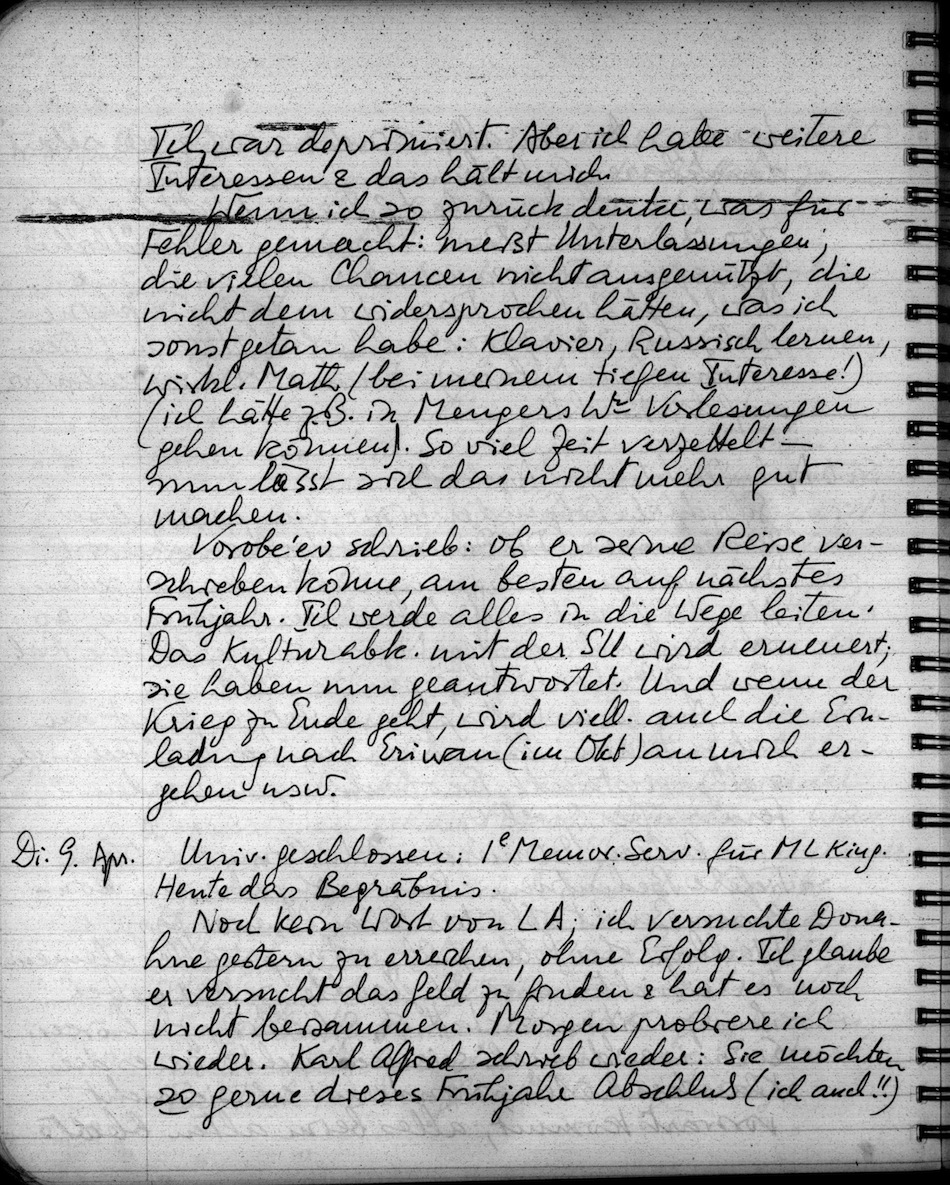 Ich war deprimiert. Aber ich habe weitere
Interessen & das hält mich.
Wenn ich so zurück denke, was für
Fehler gemacht: meist Unterlassungen,
die vielen Chancen nicht ausgenützt, die
nicht dem widersprochen hätten, was ich
sonst getan habe: Klavier, Russisch lernen,
wirkl. Math (bei meinem tiefen Interesse!)
(ich hätte z.B. in Mengers Vorlesungen
gehen können). So viel Zeit verzettelt —
nun lässt sich das nicht mehr gut
machen.
Vorobe'ev schrieb: ob er seine Reise ver-
schieben könne, am besten auf nächstes
Frühjahr. Ich werde alles in die Wege leiten.
Das Kulturabk. mit der SU wird erneuert;
sie haben nun geantwortet. Und wenn der
Krieg zu Ende geht, wird viell. auch die Ein-
ladung nach Eriwan (im Okt) an mich er-
gehen usw.
Di. 9. Apr. Univ. geschlossen: Memor. Serv. für ML King.
Heute das Begräbnis.
Noch kein Wort von LA; ich versuchte Dona-
hue gestern zu erreichen, ohne Erfolg. Ich glaube
er versucht das Geld zu finden & hat es noch
nicht beisammen. Morgen probiere ich
wieder. Karl Alfred schrieb wieder: Sie möchten
so gerne dieses Frühjahr Abschluß (ich auch!!)